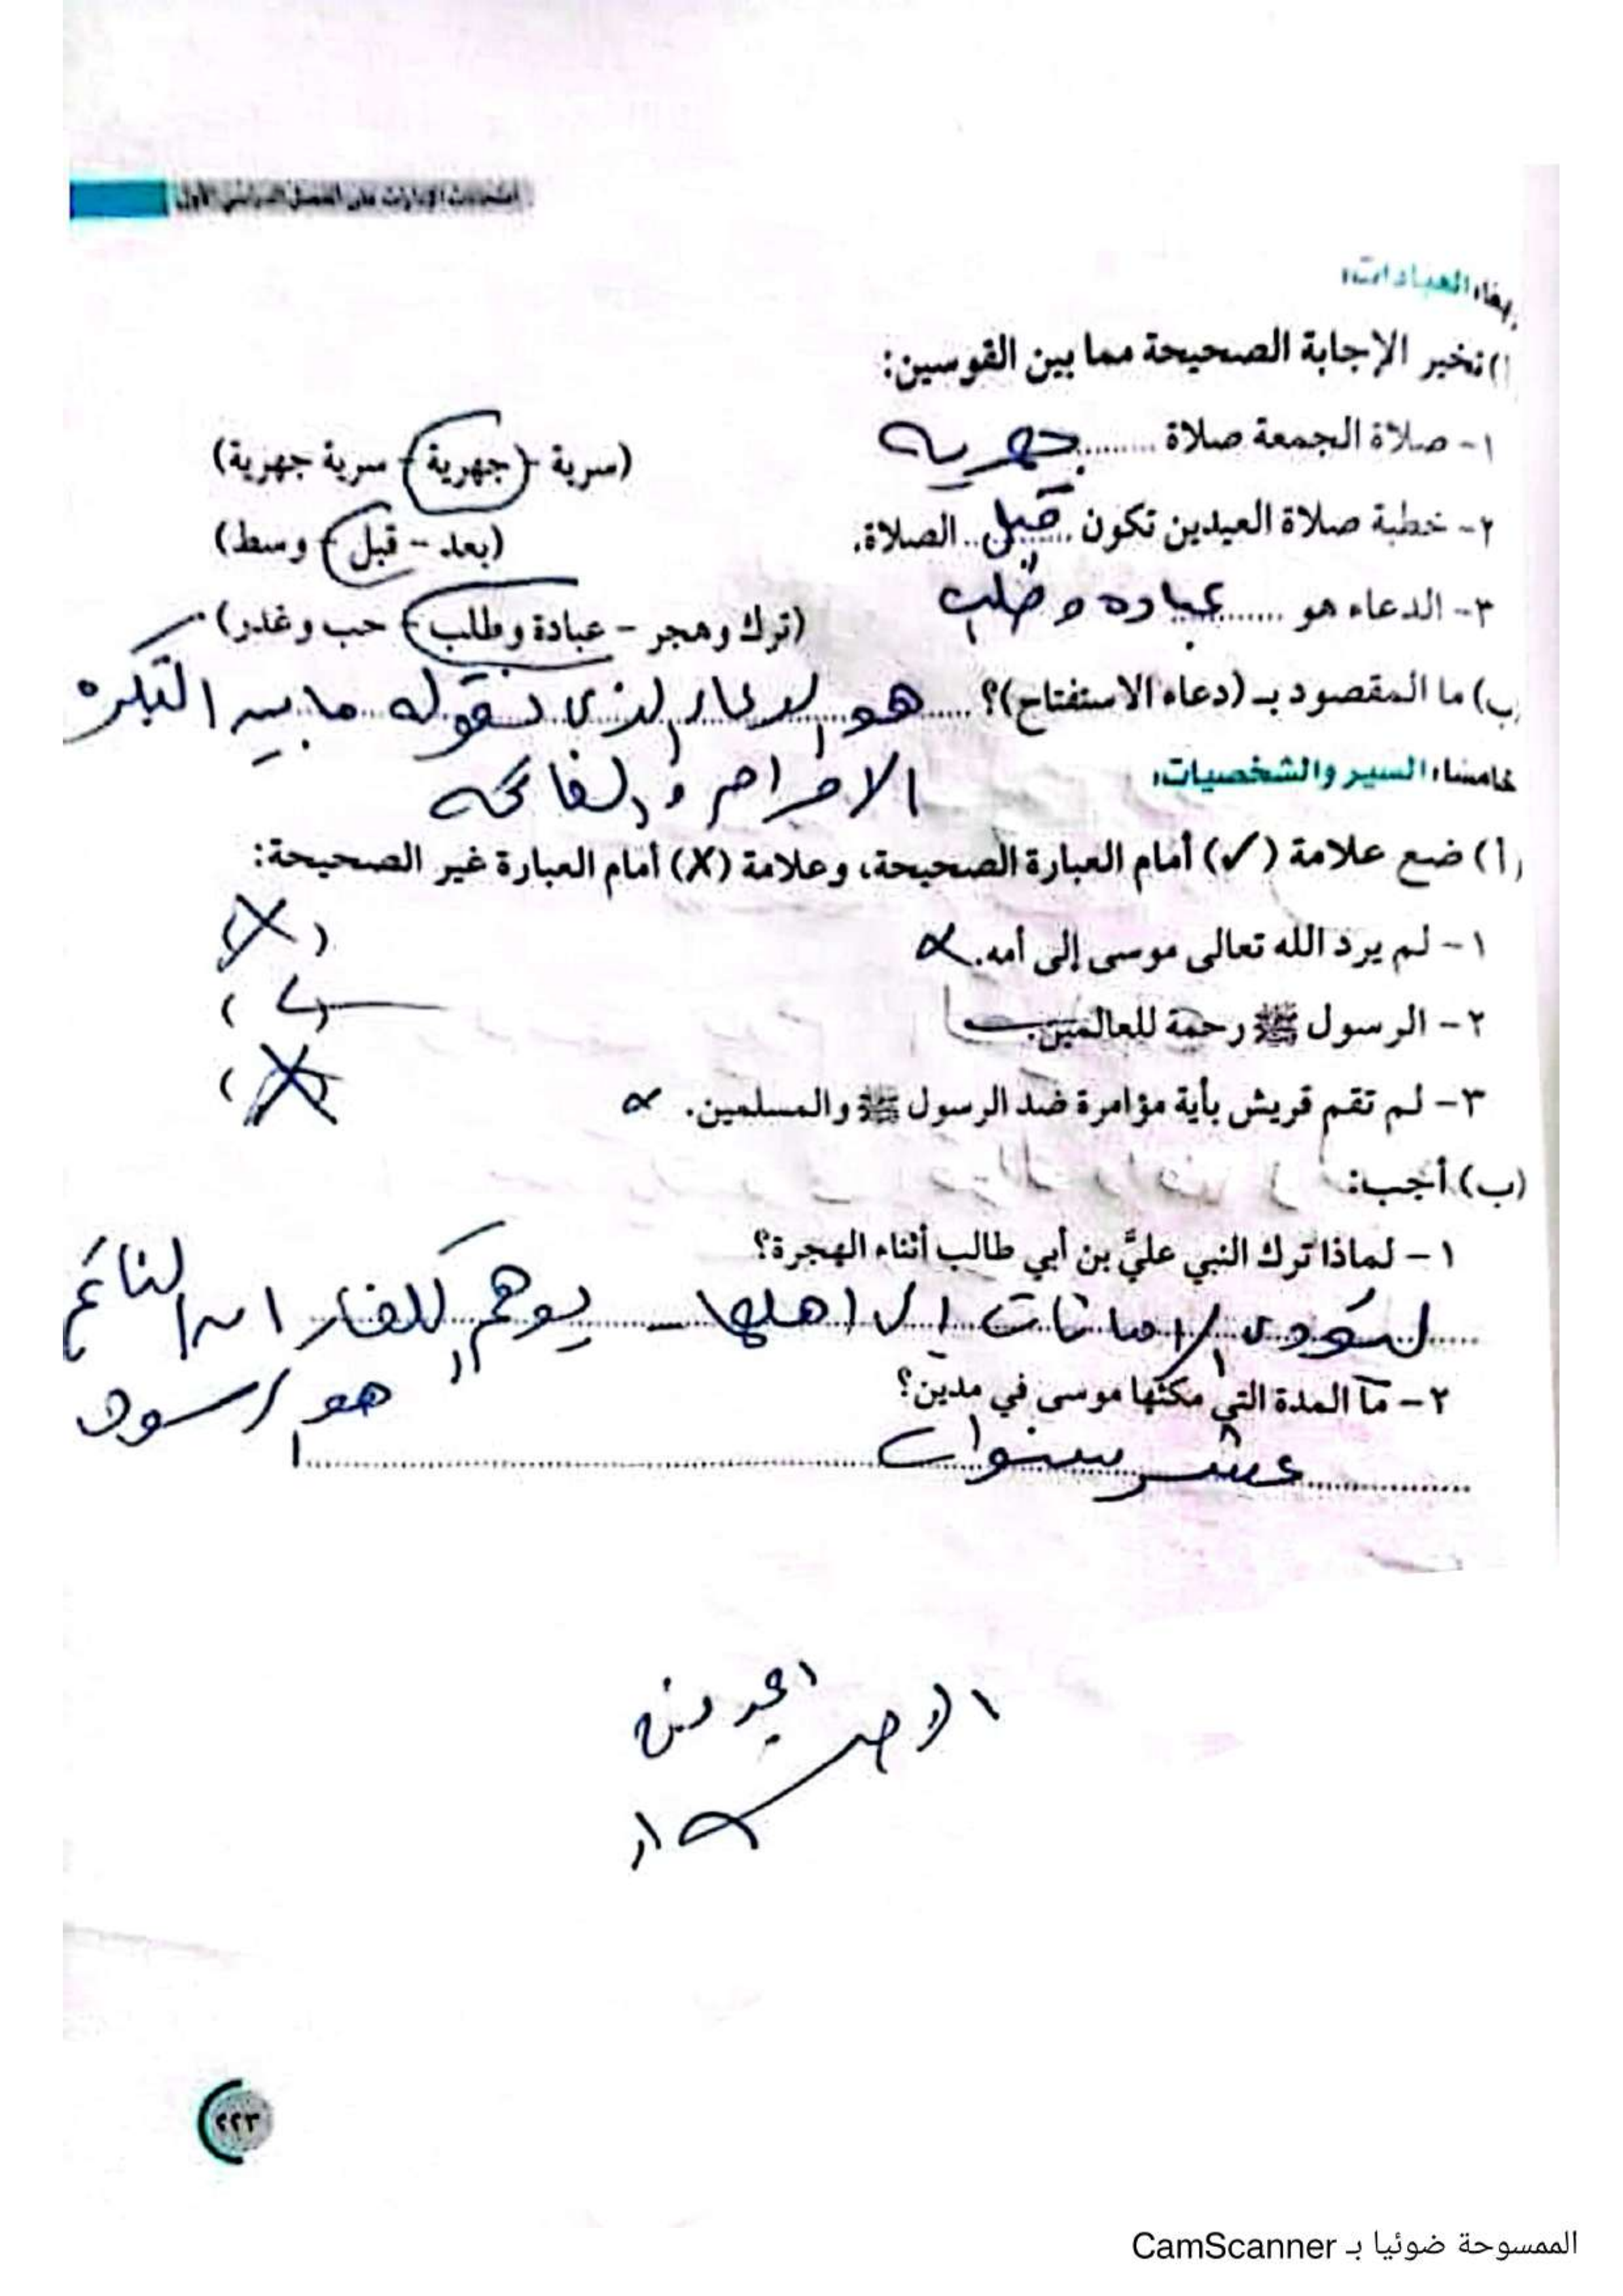 امتحانات الإدارات على الفصل الدراسي الأول
رابعًا: العبادات:
(أ) تخير الإجابة الصحيحة مما بين القوسين:
١- صلاة الجمعة صلاة ........ جهرية (سرية - جهرية - سرية جهرية)
٢- خطبة صلاة العيدين تكون قبل الصلاة. (بعد - قبل - وسط)
٣- الدعاء هو ...... عباده وطلب (ترك وهجر - عبادة وطلب - حب وغدر)
(ب) ما المقصود بـ (دعاء الاستفتاح)؟ هو الدعاء الذي نقوله ما بين التكبيره
الاحرام والفاتحه
خامسًا: السير والشخصيات:
(أ) ضع علامة (✓) أمام العبارة الصحيحة، وعلامة (X) أمام العبارة غير الصحيحة:
١- لم يرد الله تعالى موسى إلى أمه. (X)
٢- الرسول ﷺ رحمة للعالمين. (✓)
٣- لم تقم قريش بأية مؤامرة ضد الرسول ﷺ والمسلمين. (X)
(ب) أجب:
١- لماذا ترك النبي عليَّ بن أبي طالب أثناء الهجرة؟
ليؤدى الامانات الى اهلها - يوهم الكفار ان النائم
هو الرسول
٢- ما المدة التي مكثها موسى في مدين؟
عشر سنوات
٢٢٣
الممسوحة ضوئيا بـ CamScanner